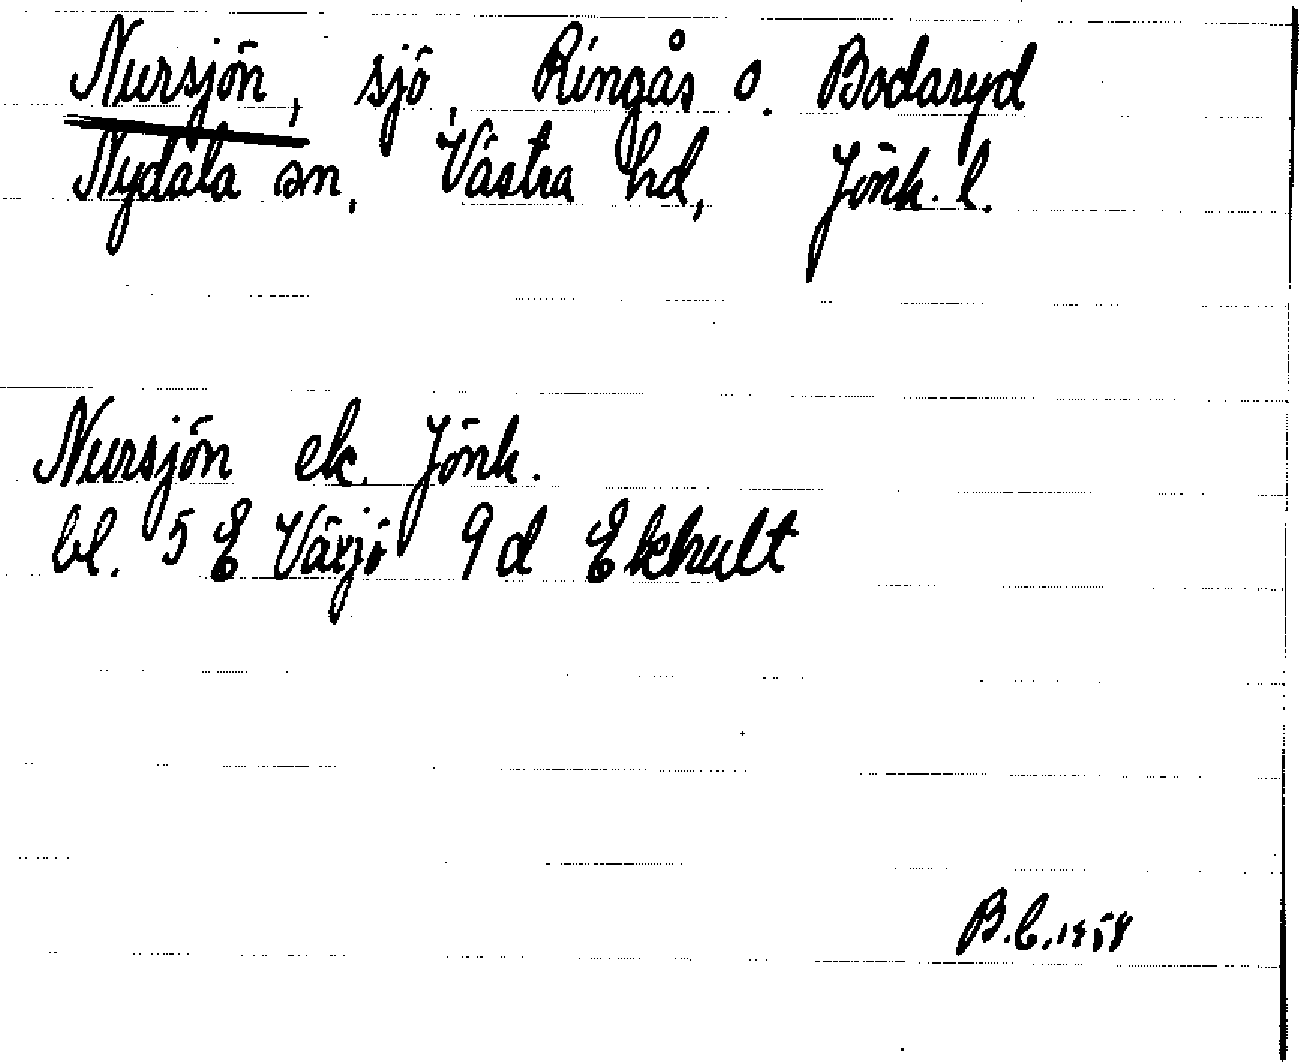 Nursjön, sjö, Ringås o. Bodaryd
Nydala sn, Västra hd, Jönk. l.
Nursjön ek. Jönk.
bl. 5 E Växjö 9 d Ekhult
B.C. 1958